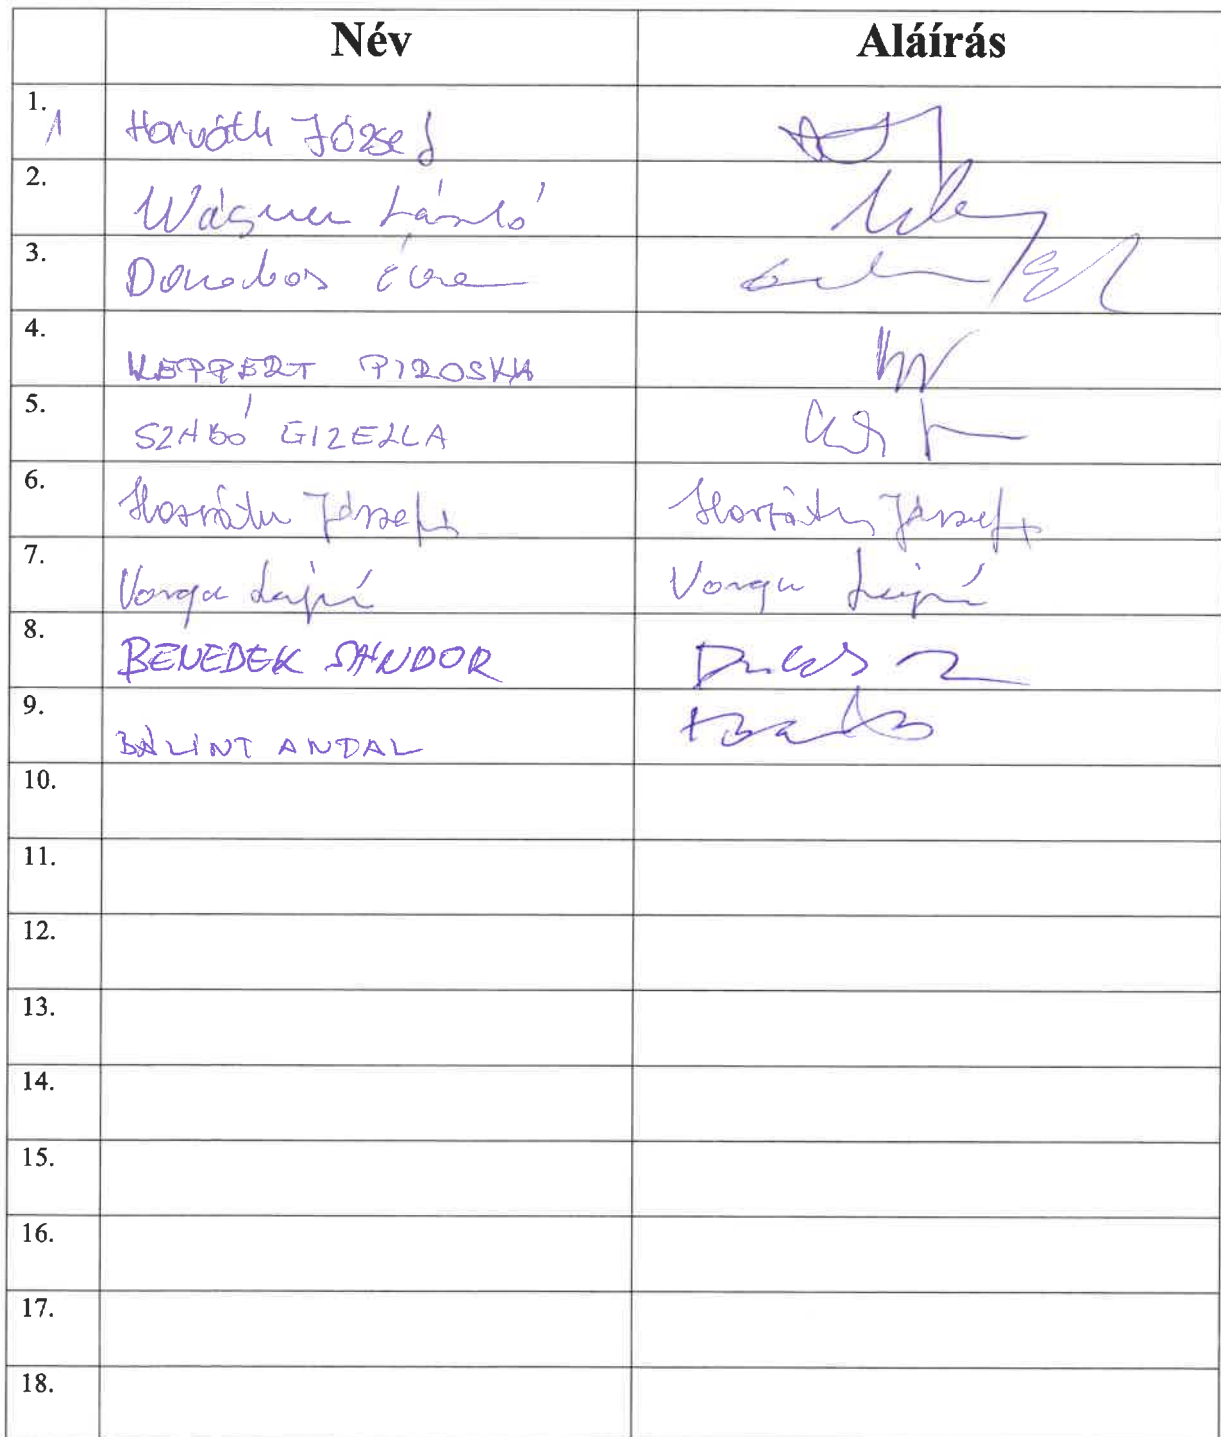 Név Aláírás
1. 1 Horváth József
2. Wágner László
3. Éva
4. KEPPERT PIROSKA
5. SZABÓ GIZELLA
6. Horváth József Horváth József
7. Varga Lajosné Varga Lajosné
8. BENEDEK SÁNDOR
9. BÁLINT ANTAL
10.
11.
12.
13.
14.
15.
16.
17.
18.